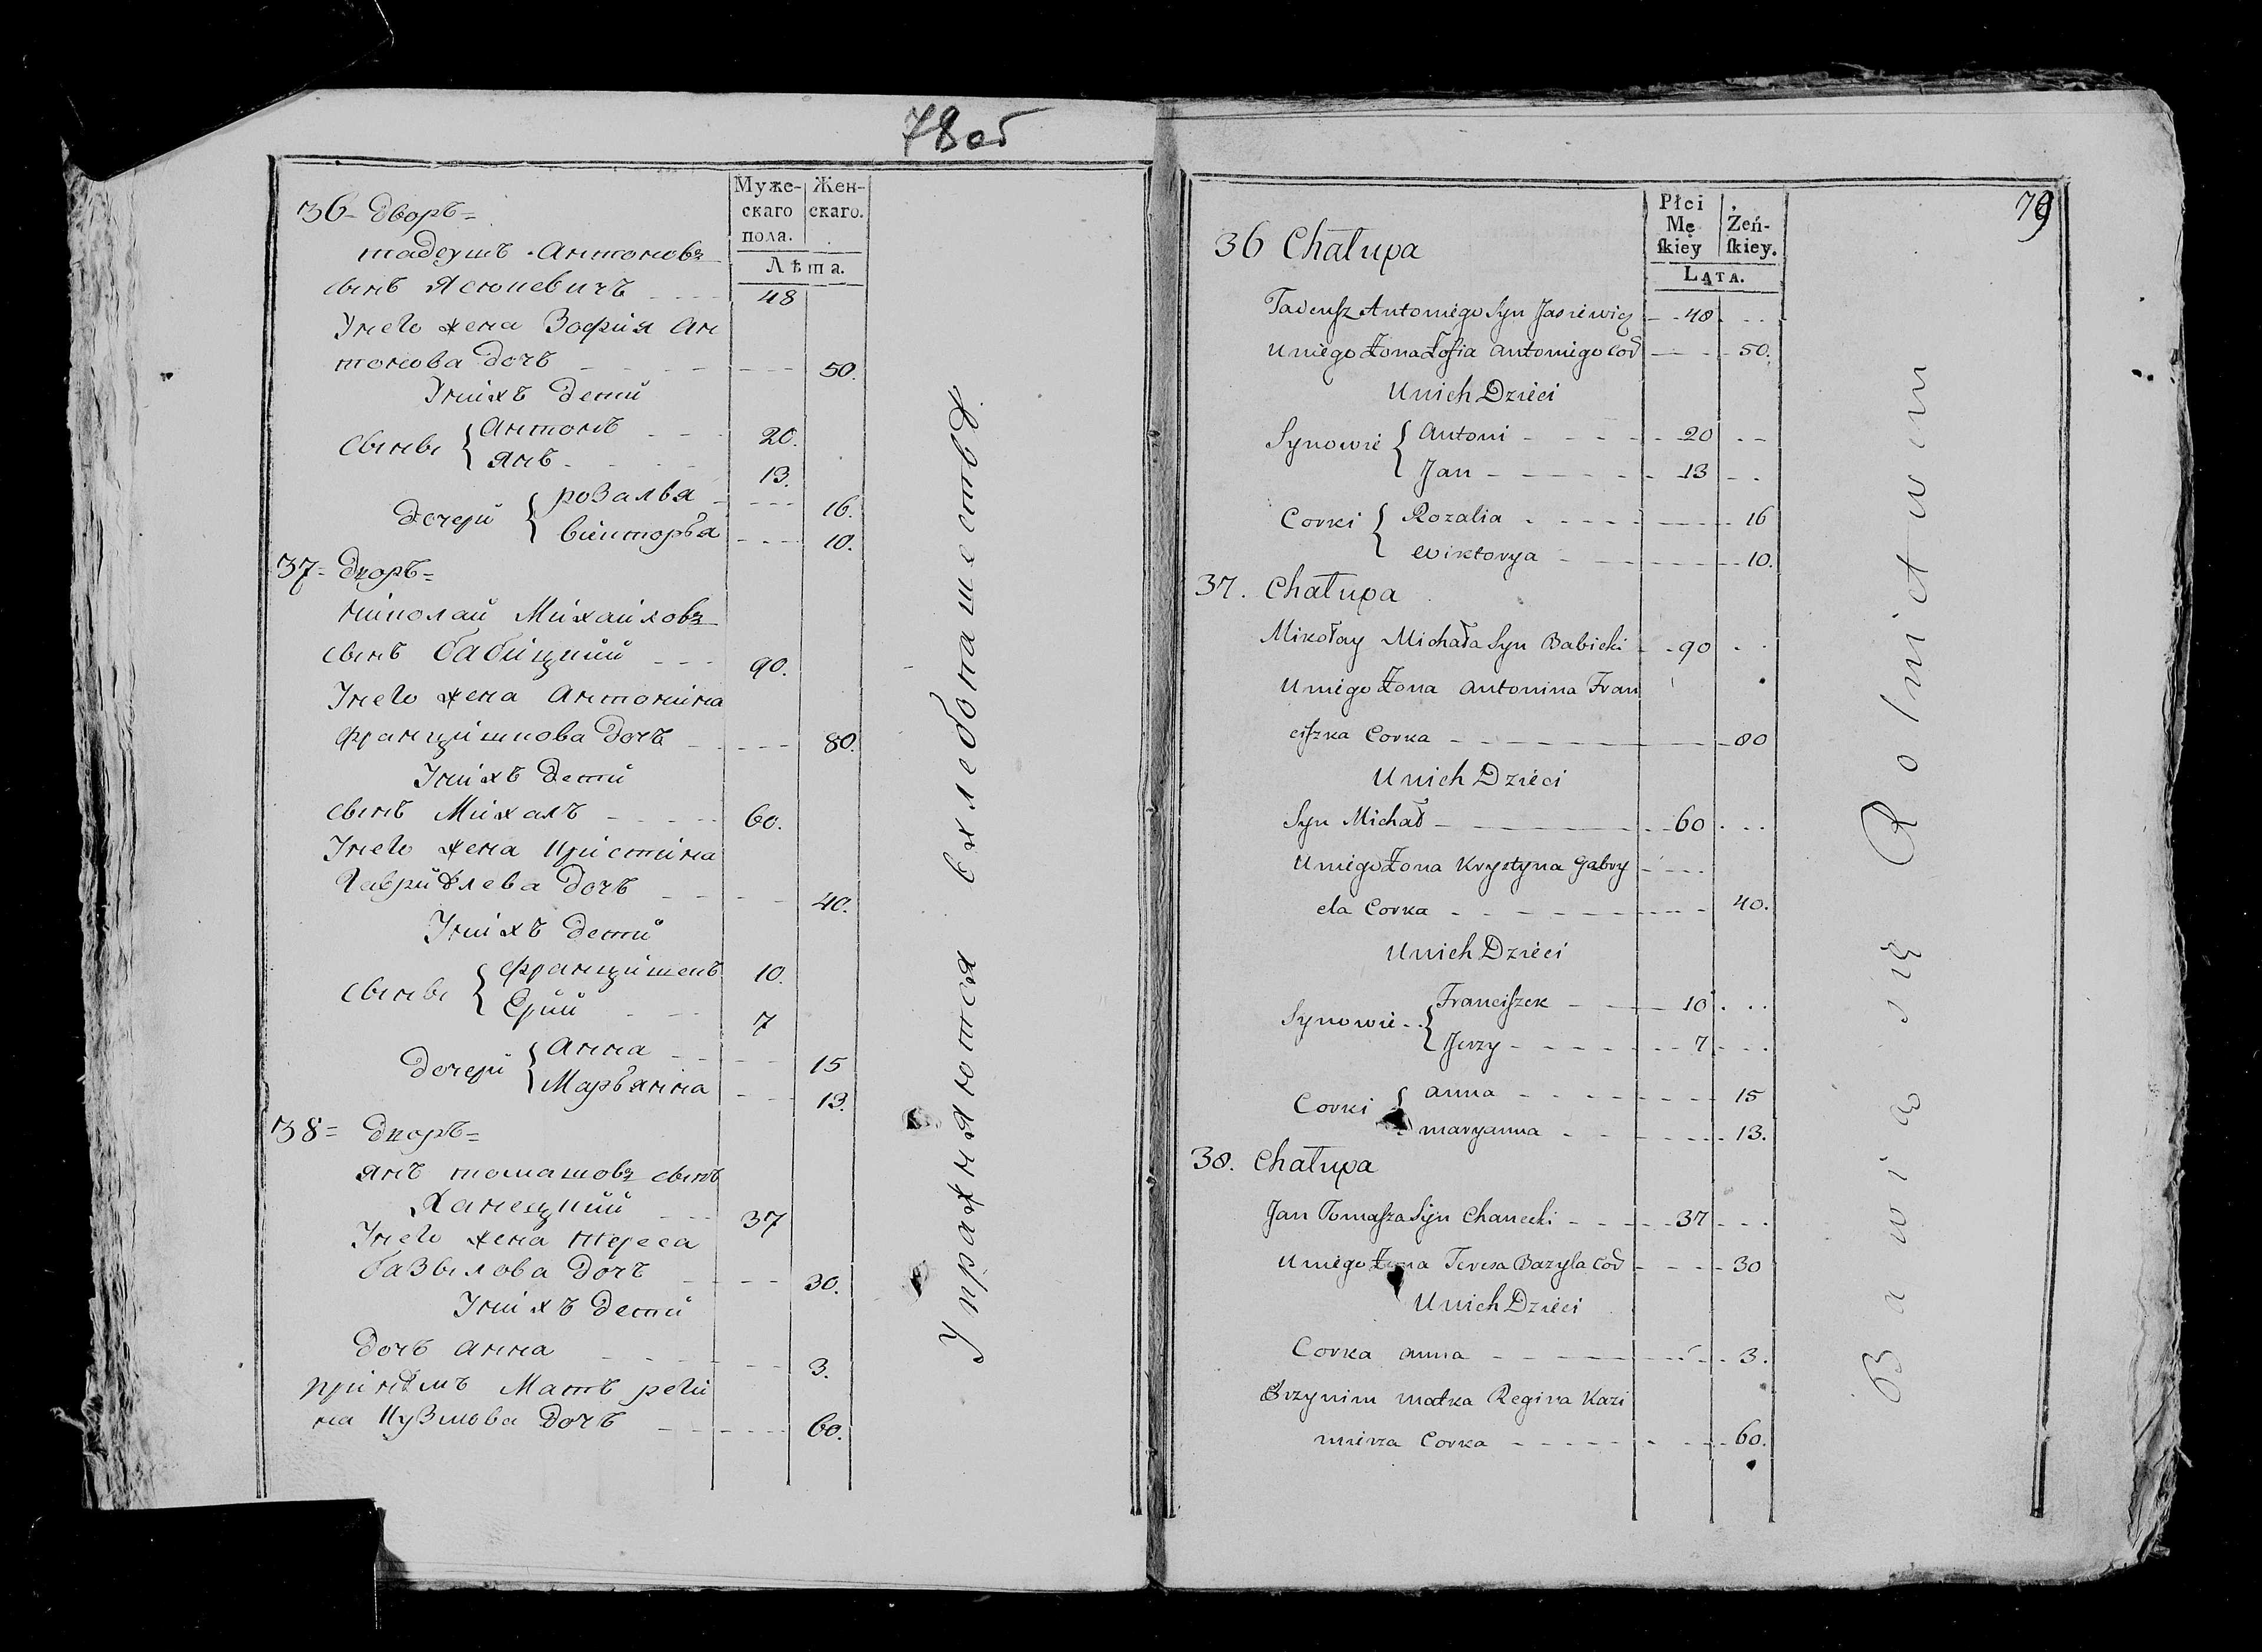 78 об
Муже-
скаго
пола.
Жен-
скаго.
Лѣта.
36 = дворъ =
тадеушъ Антоновъ
сынъ Ясюкевичъ 48
Унего жена Зофия Ан
тонова дочь 50.
Унихъ дети
сыны { Антонъ 20.
Янъ 13.
дочери { розалья 16.
викторья 10.
37 = дворъ =
николай Михайловъ
сынъ бабицкий 90.
Унего жена Антонина
францишкова дочь 80.
Унихъ дети
сынъ Михалъ 60.
Унего жена кристина
Гаврійлева дочь 40.
Унихъ дети
сыны { францишекъ 10.
Ерий 7
дочери { анна 15
Марьянна 13.
38 = дворъ =
янъ томашовъ сынъ
Ханецкий 37
Унего жена тереса
базылова дочь 30.
Унихъ дети
дочь анна 3.
принѣмъ Мать реги
на кузмова дочь 60.
Упражняются вхлебопашествѣ.
79
Płci
Mę
ſkiey
Żeń-
ſkiey.
Lata.
36 Chałupa
Tadeuſz Antoniego Syn Jasiewicz 48
Uniego Żona Zofia Antoniego Cor 50.
Unich Dzieci
Synowie { Antoni 20
Jan 13
Corki { Rozalia 16
Wiktorya 10.
37. Chałupa
Mikołay Michała Syn Babicki 90
Uniego Żona Antonina Fran
ciſzka Corka 80
Unich Dzieci
Syn Michał 60
Uniego Żona Krystyna Gabry
ela Corka 40.
Unich Dzieci
Synowie { Franciſzek 10
Jerzy 7
Corki { anna 15
maryanna 13.
38. Chałupa
Jan Tomaſza Syn Chanecki 37
Uniego Żona Teresa Bazyla Cor 30
Unich Dzieci
Corka anna 3.
Przynim matka Regina Kazi
mierza Corka 60.
Bawią się Rolnictwem